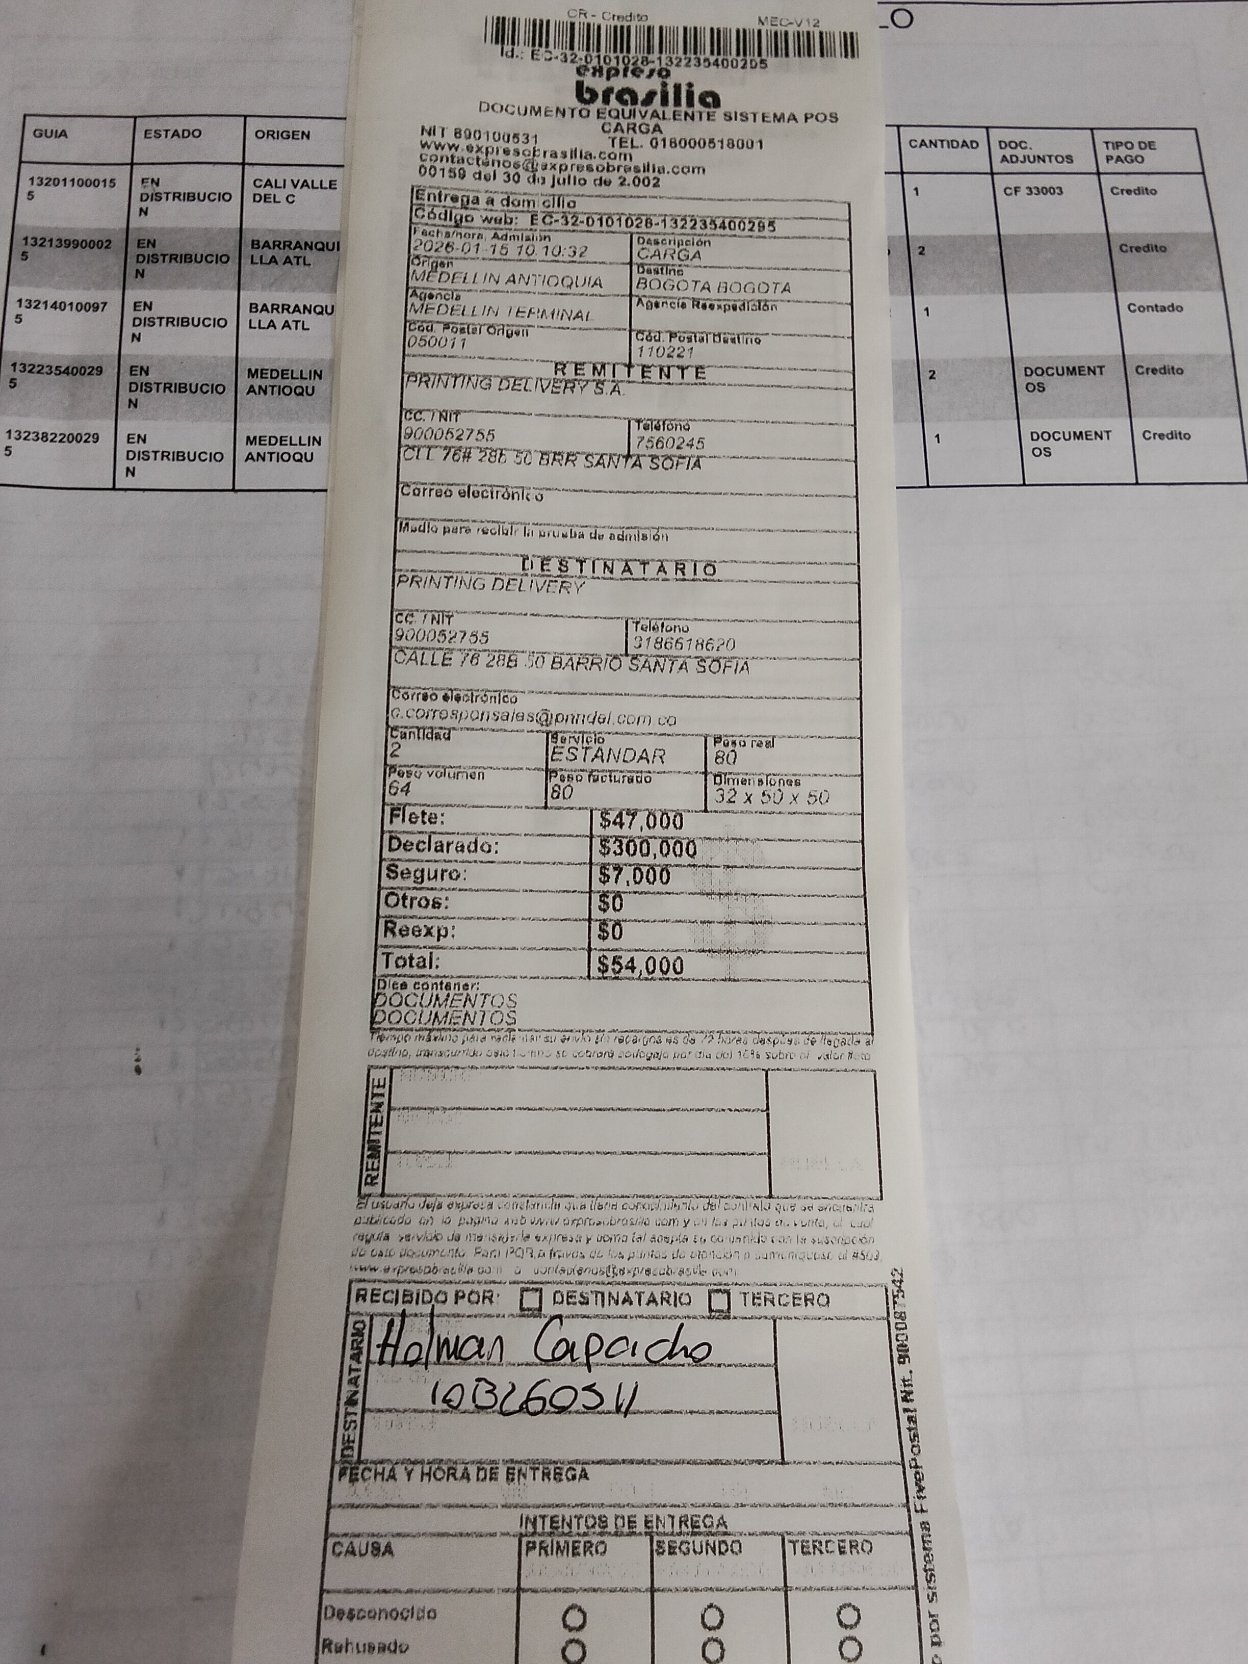 CR - Credito
MEC-V12
LO
Id.: EC-32-0101028-132235400295
expreso
brasilia
DOCUMENTO EQUIVALENTE SISTEMA POS
CARGA
NIT 890100531 TEL. 018000518001
www.expresobrasilia.com
contactenos@expresobrasilia.com
00159 del 30 de julio de 2.002
GUIA ESTADO ORIGEN
13201100015 EN CALI VALLE
5 DISTRIBUCIO DEL C
N
13213990002 EN BARRANQUI
5 DISTRIBUCIO LLA ATL
N
13214010097 EN BARRANQU
5 DISTRIBUCIO LLA ATL
N
13223540029 EN MEDELLIN
5 DISTRIBUCIO ANTIOQU
N
13238220029 EN MEDELLIN
5 DISTRIBUCIO ANTIOQU
N
CANTIDAD DOC. TIPO DE
ADJUNTOS PAGO
1 CF 33003 Credito
2 Credito
1 Contado
2 DOCUMENT Credito
OS
1 DOCUMENT Credito
OS
Entrega a domicilio
Código web: EC-32-0101028-132235400295
Fecha/hora Admisión Descripción
2026-01-15 10:10:32 CARGA
Origen Destino
MEDELLIN ANTIOQUIA BOGOTA BOGOTA
Agencia Agencia Reexpedición
MEDELLIN TERMINAL
Cód. Postal Origen Cód. Postal Destino
050011 110221
REMITENTE
PRINTING DELIVERY S.A.
CC. / NIT Teléfono
900052755 7560245
CLL 76# 28b 50 BRR SANTA SOFIA
Correo electrónico
Medio para recibir la prueba de admisión
DESTINATARIO
PRINTING DELIVERY
CC. / NIT Teléfono
900052755 3186618620
CALLE 76 28B 50 BARRIO SANTA SOFIA
Correo electrónico
c.corresponsales@prindel.com.co
Cantidad Servicio Peso real
2 ESTANDAR 80
Peso volumen Peso facturado Dimensiones
64 80 32 x 50 x 50
Flete: $47,000
Declarado: $300,000
Seguro: $7,000
Otros: $0
Reexp: $0
Total: $54,000
Dice contener:
DOCUMENTOS
DOCUMENTOS
Tiempo máximo para reclamar su envío sin recargos es de 72 horas después de llegada al
destino, transcurrido este tiempo se cobrará bodegaje por día del 10% sobre el valor flete
REMITENTE
El usuario deja expresa constancia que tiene conocimiento del contrato que se encuentra
publicado en la pagina web www.expresobrasilia.com y en los puntos de venta, el cual
regula servicio de mensajería expresa y como tal acepta su contenido con la suscripción
de este documento. Para PQR a través de los puntos de atención o comuníquese al #503
www.expresobrasilia.com o contactenos@expresobrasilia.com
RECIBIDO POR: DESTINATARIO TERCERO
DESTINATARIO
Holman Capacho
103260311
FECHA Y HORA DE ENTREGA
INTENTOS DE ENTREGA
CAUSA PRIMERO SEGUNDO TERCERO
Desconocido
Rehusado
o por sistema FivePostal Nit. 900087542